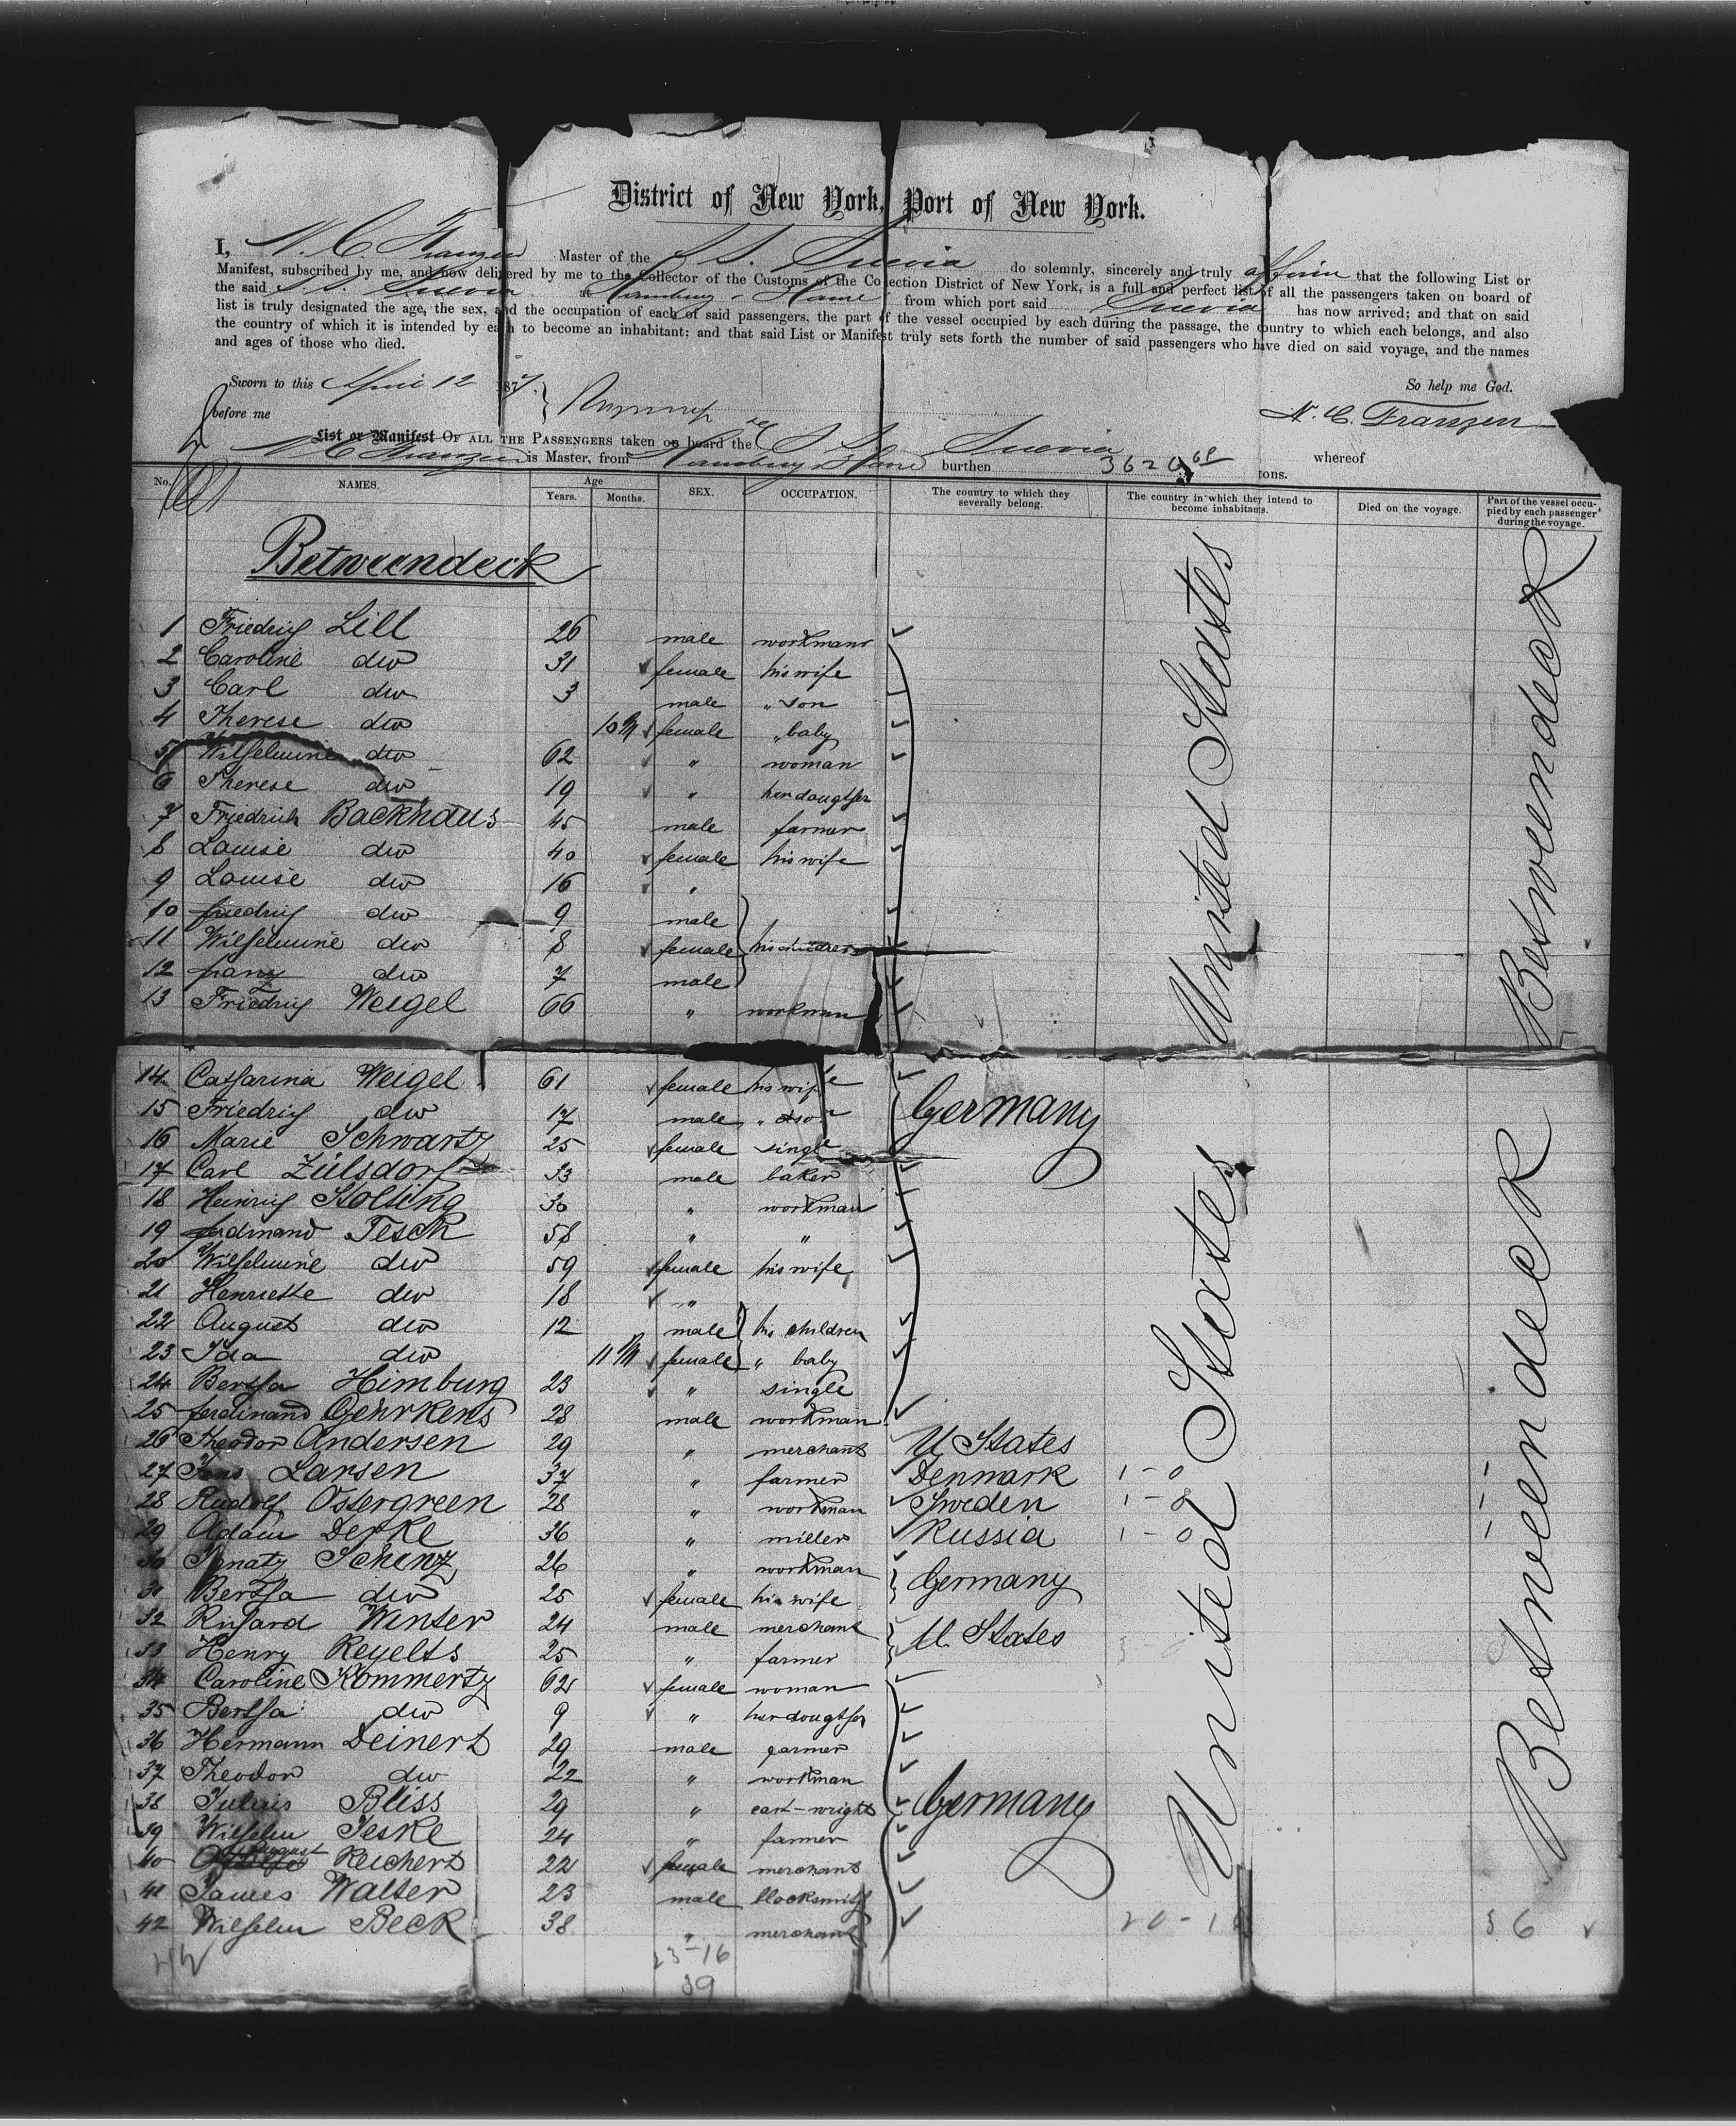 District of New York, Port of New York.
I, N. C. Franzen Master of the S S. Suevia do solemnly, sincerely and truly affirm that the following List or
Manifest, subscribed by me, and now delivered by me to the Collector of the Customs of the Collection District of New York, is a full and perfect list of all the passengers taken on board of
the said S S. Suevia at Hamburg & Havre from which port said Suevia has now arrived; and that on said
list is truly designated the age, the sex, and the occupation of each of said passengers, the part of the vessel occupied by each during the passage, the country to which each belongs, and also
the country of which it is intended by each to become an inhabitant; and that said List or Manifest truly sets forth the number of said passengers who have died on said voyage, and the names
and ages of those who died.
Sworn to this April 12 1877. So help me God.
before me N. C. Franzen
List or Manifest OF ALL THE PASSENGERS taken on board the S S. Suevia whereof
N C Franzen is Master, from Hamburg & Havre burthen 3626 68 tons.
No. NAMES. Age Years. Months. SEX. OCCUPATION. The country to which they severally belong. The country in which they intend to become inhabitants. Died on the voyage. Part of the vessel occupied by each passenger during the voyage.
Betweendeck
1 Friedrich Lill 26 male workman
2 Caroline dio 31 female his wife
3 Carl dio 3 male " son
4 Therese dio 10 M female " baby
5 Wilhelmine dio 62 " woman
6 Therese dio 19 " her daugther
7 Friedrich Backhaus 45 male farmer
8 Louise dio 40 female his wife
9 Louise dio 16 "
10 friedrich dio 9 male
11 Wilhelmine dio 8 female his children
12 franz dio 7 male
13 Friedrich Weigel 66 " workman
14 Catharina Weigel 61 female his wife
15 Friedrich dio 17 male " son
16 Marie Schwartz 25 female single
17 Carl Zülsdorf 33 male baker
18 Heinrich Stolting 30 " workman
19 ferdinand Tesck 58 " "
20 Wilhelmine dio 59 female his wife
21 Henriette dio 18 "
22 August dio 12 male his children
23 Ida dio 11 M female " baby
24 Bertha Himburg 23 " single
25 ferdinand Gehrkens 28 male workman
Germany
26 Theodor Andersen 29 " merchant U States
27 Jens Larsen 37 " farmer Denmark 1 - 0 1
28 Rudolf Ostergreen 28 " workman Sweden 1 - 0 1
29 Adam Derke 36 " miller Russia 1 - 0 1
30 Ignatz Schinz 26 " workman Germany
31 Bertha dio 25 female his wife
32 Richard Winter 24 male merchant U. States
33 Henry Reyelts 25 " farmer
34 Caroline Kommertz 62 female woman
35 Bertha dio 9 " her daugther
36 Hermann Deinert 29 male farmer
37 Theodor dio 22 " workman
38 Julius Bliss 29 " cart-wright Germany
39 Wilhelm Jeske 24 " farmer
40 August Reichert 22 merchant
41 James Walter 23 male blacksmith
42 Wilhelm Beck 38 " merchant
United States
United States
Betweendeck
Betweendeck
42 23-16 36
39